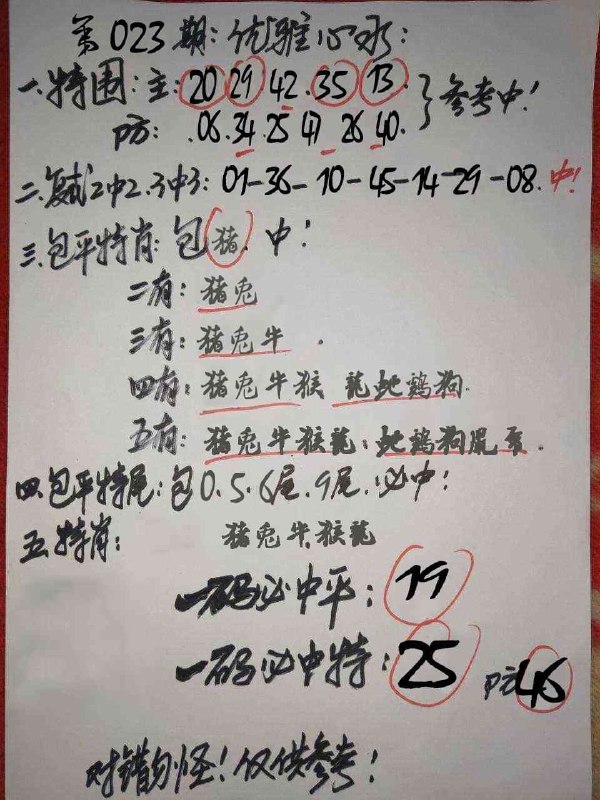 第023期:优雅心水:
一.特围:主:20 29 42.35 13.
P方: .06.34.25 47 26 40. }参考中!
二.复试2中2.3中3: 01-36-10-45-14-29-08.中!
三.包平特肖:包猪.中!
二有:猪兔
三有:猪兔牛.
四有:猪兔牛猴 龍蛇鷄狗.
五有:猪兔牛猴龍:蛇鷄狗鼠
四.包平特尾:包0.5.6尾.9尾.必中!
五.特肖: 猪兔牛.猴龍
一码必中平: 19
一码必中特: 25 P方46
对错勿怪!仅供参考!